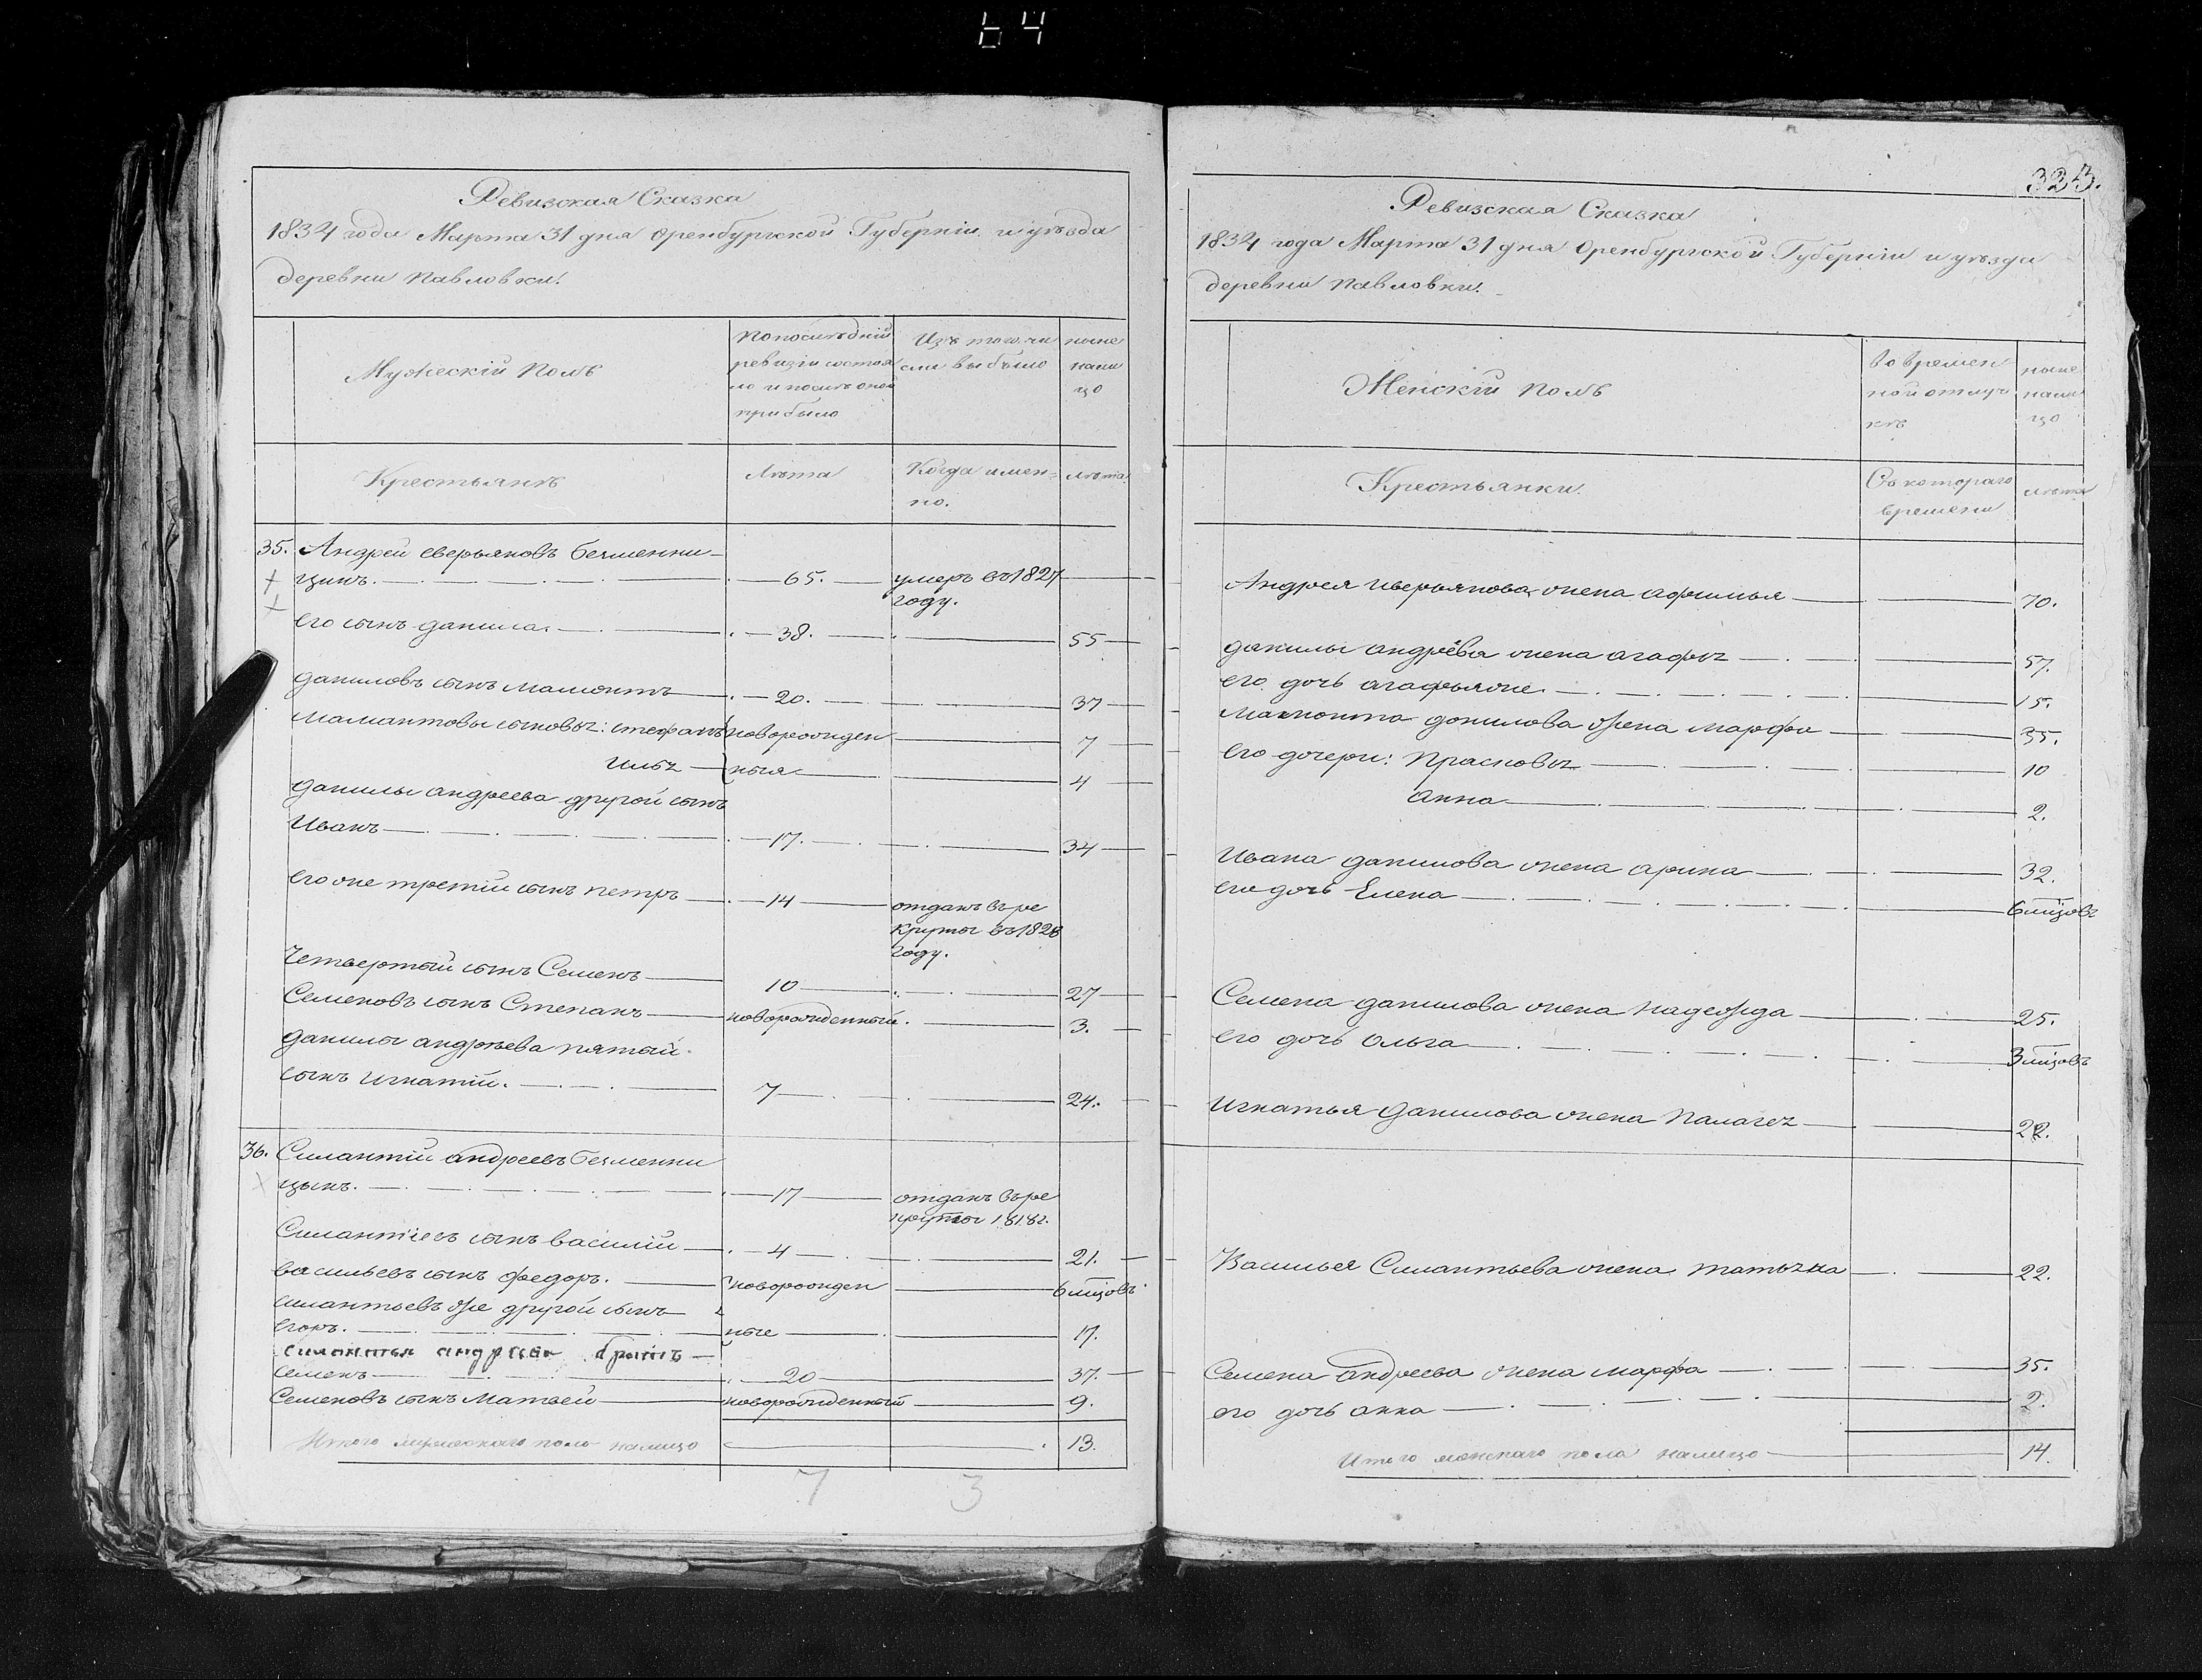 64
Ревизская Сказка
1834 года Марта 31 дня Оренбургской Губерніи и уѣзда
деревни Павловки.
Мужескій полъ
По последней
ревизіи состоя
ло и послѣ оной
прибыло
Изъ того чи
сла выбыло
ныне
нали
цо
Крестьянъ
Лѣта
Когда имен-
но.
лѣта
35. Андрей Аверьяновъ Безменни-
цинъ. 65. умеръ въ 1827
году.
его сынъ данила. 38. 55
даниловъ сынъ мамонтъ 20. 37
мамантовы сыновья: стефанъ новорожден 7
илья ныя 4
данилы андреева другой сынъ
Иванъ 17. 34
его же третій сынъ петръ 14 отданъ въ ре
круты въ 1828
году.
Четвертый сынъ Семенъ 10 27
Семеновъ сынъ Степанъ новорожденный. 3.
данилы андрѣева пятый
сынъ игнатій. 7 24.
36. Силантій андреевъ безменни
цынъ. 17 отданъ въ ре
круты 1818 г.
Силантіевъ сынъ василій 4 21.
васильевъ сынъ федоръ. новорожден 6 мцовъ
силантьевъ же другой сынъ
егоръ. ные 17.
силантья андреева братъ
семенъ 20 37.
Семеновъ сынъ Матвей новорожденный 9.
Итого мужескаго пола налицо 13.
7 3
325.
Ревизская Сказка
1834 года Марта 31 дня Оренбургской Губерніи и уѣзда
деревни Павловки.
Женскій полъ
Во времен
ной отлуч
кѣ
ныне
нали
цо
Крестьянки.
Съ котораго
времени
лѣта
Андрея Аверьянова жена афимья 70.
данилы андреева жена агафья 57.
его дочь агафья же. 15.
Мамонта данилова жена марфа 35.
его дочери: Прасковья 10
Анна 2.
Ивана данилова жена арина 32.
его дочь Елена 6 мцовъ
Семена данилова жена надежда 25.
его дочь Ольга 3 мцовъ
Игнатья данилова жена Палагея 22.
Василья Силантьева жена татьяна 22.
Семена андреева жена марфа 35.
его дочь анна 2.
Итого женскаго пола налицо 14.